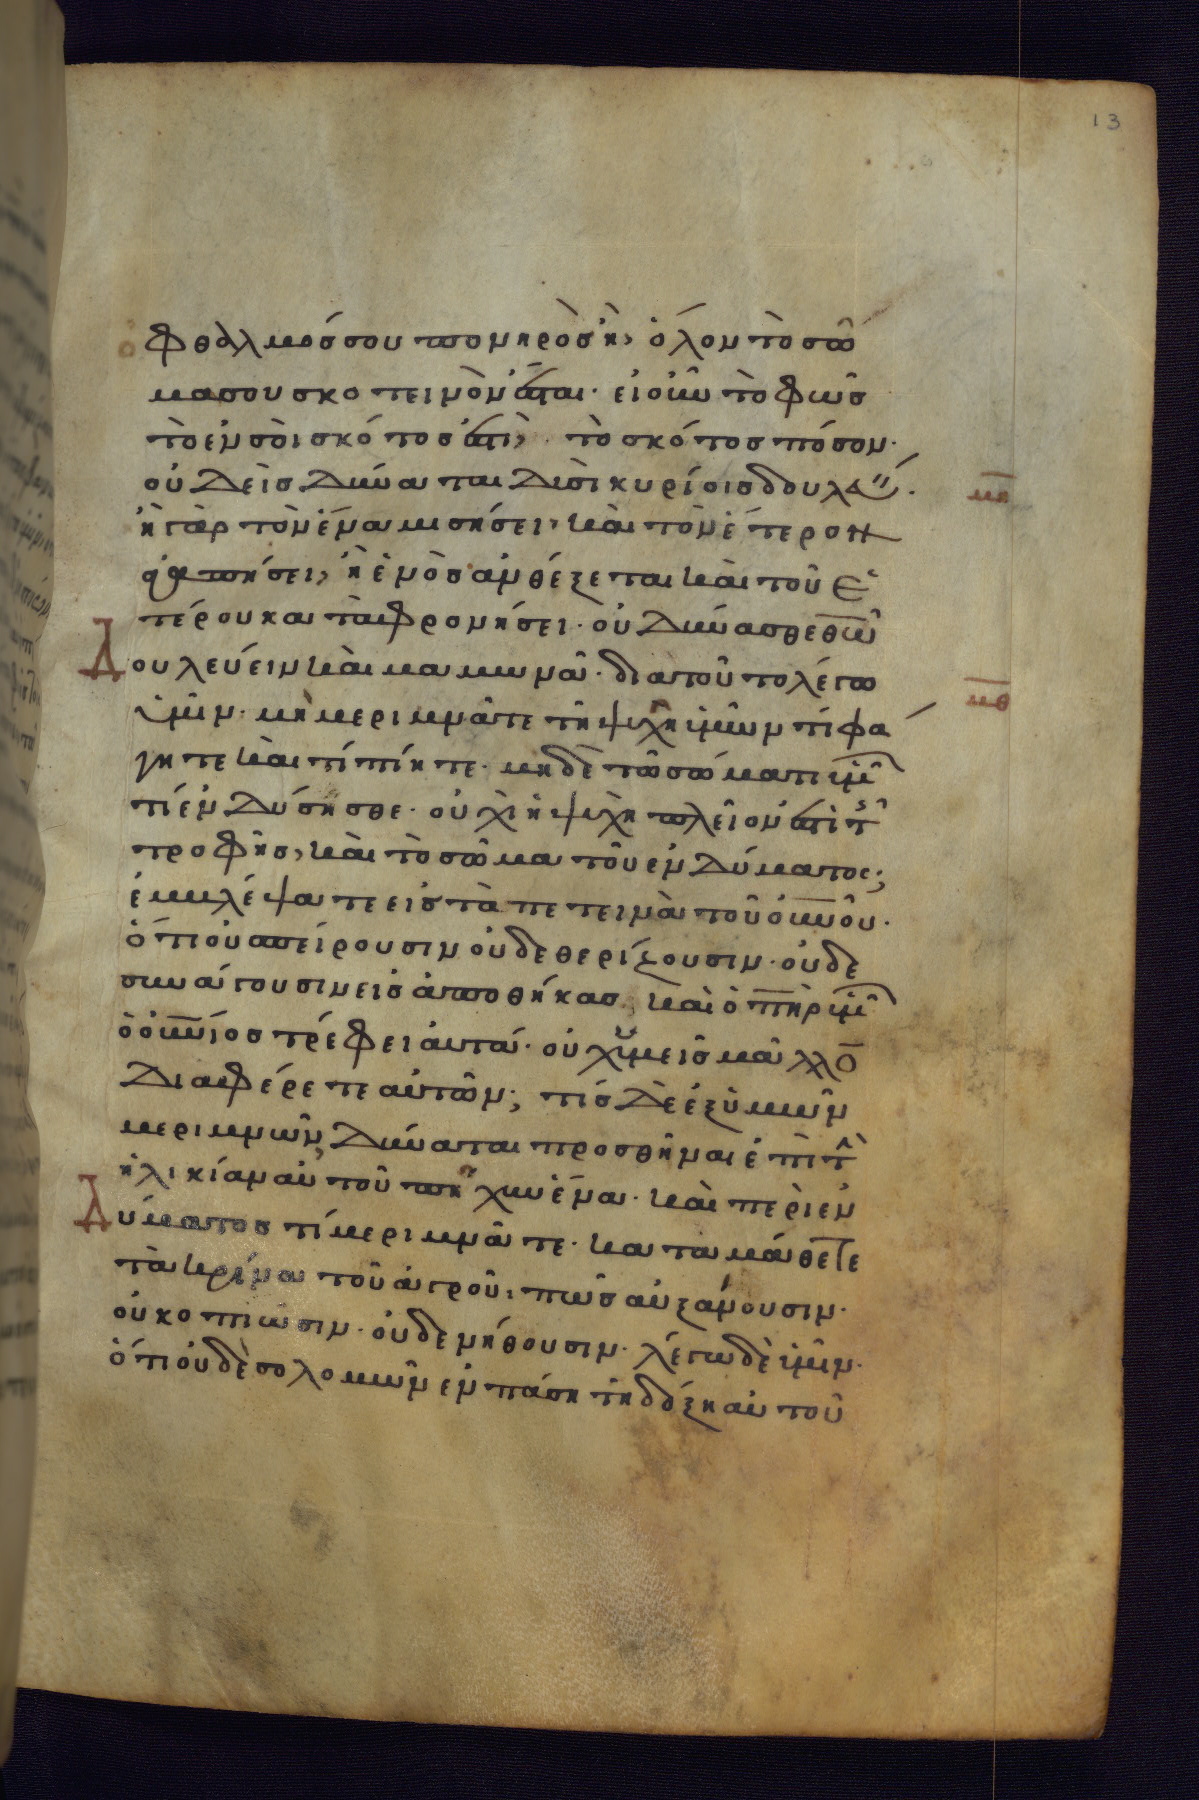 13
ὀφθαλμόσσου πονηρὸσ ἦ, ὅλον τὸ σῶ
μα σου σκοτεινὸν ἔσται· εἰ οὖν τὸ φῶσ
τὸ ἐν σοὶ σκότοσ ἐστὶ, τὸ σκότοσ πόσον·
οὐδεὶσ δύναται δυσὶ κυρίοισ δουλεύειν·
ἢ γὰρ τὸν ἕνα μισήσει, καὶ τὸν ἕτερον
ἀγαπήσει, ἢ ἑνὸσ ἀνθέξεται καὶ τοῦ ἑ
τέρου καταφρονήσει· οὐ δύνασθε θ̅ω̅
δουλεύειν καὶ μαμωνᾶ· διατοῦτο λέγω
ὑμῖν· μὴ μεριμνᾶτε τῆ ψυχῆ ὑμῶν τί φά
γητε καὶ τί πίητε· μηδὲ τῶ σώματι ὑμῶν
τί ἐνδύσησθε· οὐχὶ ἡ ψυχὴ πλεῖόν ἐστι τῆσ
τροφῆσ, καὶ τὸ σῶμα τοῦ ἐνδύματοσ;
ἐμβλέψατε εἰσ τὰ πετεινὰ τοῦ ο̅υ̅ν̅ο̅υ̅·
ὅτι οὐ σπείρουσιν οὐδε θερίζουσιν· οὐδε
συνάγουσιν εἰσ ἀποθήκασ, καὶ ὁ π̅η̅ρ̅ ὑμῶν
ὁ ο̅υ̅ν̅ιοσ τρέφει αὐτά· οὐχ ὑμεῖσ μᾶλλον
διαφέρετε αὐτῶν; τίσ δὲ ἐξ ὑμῶν
μεριμνῶν, δύναται προσθῆναι ἐπὶ τὴν
ἡλικίαν αὐτοῦ πῆχυν ἕνα· καὶ περὶ ἐν
δύματοσ τί μεριμνᾶτε· καταμάθετε
τὰ κρίνα τοῦ ἀγροῦ, πῶσ αὐξάνουσιν·
οὐ κοπιῶσιν· οὐδε νήθουσιν· λέγω δὲ ὑμῖν·
ὅτι οὐδὲ σολομῶν ἐν πάση τῆ δόξη αὐτοῦ
μη
μθ